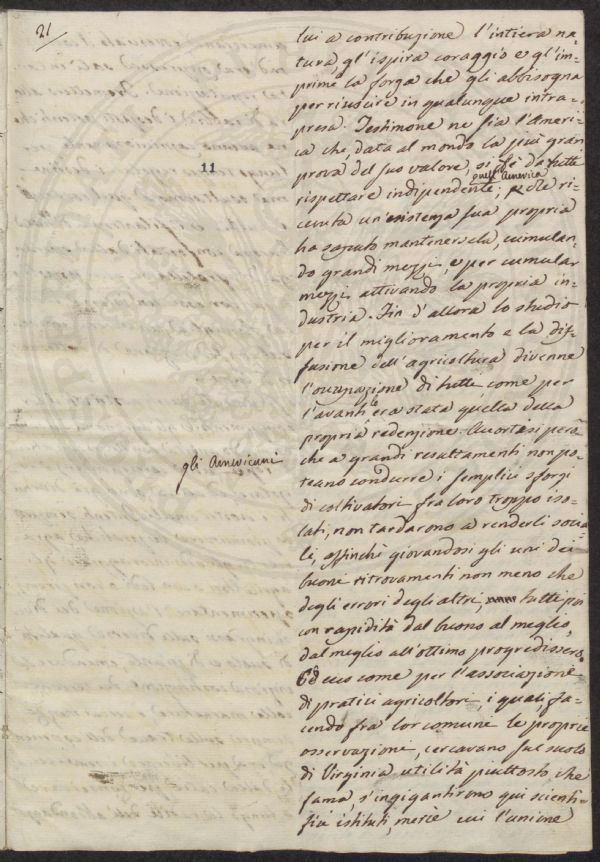 21/
11
lui a contribuzione l'intiera na-
tura, gl'ispira coraggio e gl'im-
prime la forza che gli abbisogna
per riuscire in qualunque intra-
presa. Testimone ne sia l'Ameri-
ca che, data al mondo la più gran
prova del suo valore, si fè da tutti
quell'America
rispettare indipendente; e che ri-
cevuta un'esistenza sua propria
ha saputo mantenersela, cumulan-
do grandi mezzi, e per cumular
mezzi attivando la propria in-
dustria. Fin d'allora lo studio
per il miglioramento e la dif-
fusione dell'agricoltura divenne
l'occupazione di tutti come per
l'avanti era stata quella della
propria redenzione. Accortasi però
gli Americani
che a grandi resultamenti non po-
teano condurre i semplici sforzi
di coltivatori fra loro troppo iso-
lati, non tardarono a renderli socia-
li, affinchè giovandosi gli uni dei
buoni ritrovamenti non meno che
degli errori degli altri, tutti poi
con rapidità dal buono al meglio,
dal meglio all'ottimo progredissero.
Ed ecco come per l'associazione
di pratici agricoltori, i quali, fa-
cendo fra lor comuni le proprie
osservazioni, cercavano sul suolo
di Virginia utilità piuttosto che
fama, s'ingigantirono qui scienti-
fici istituti, mercè cui l'unione